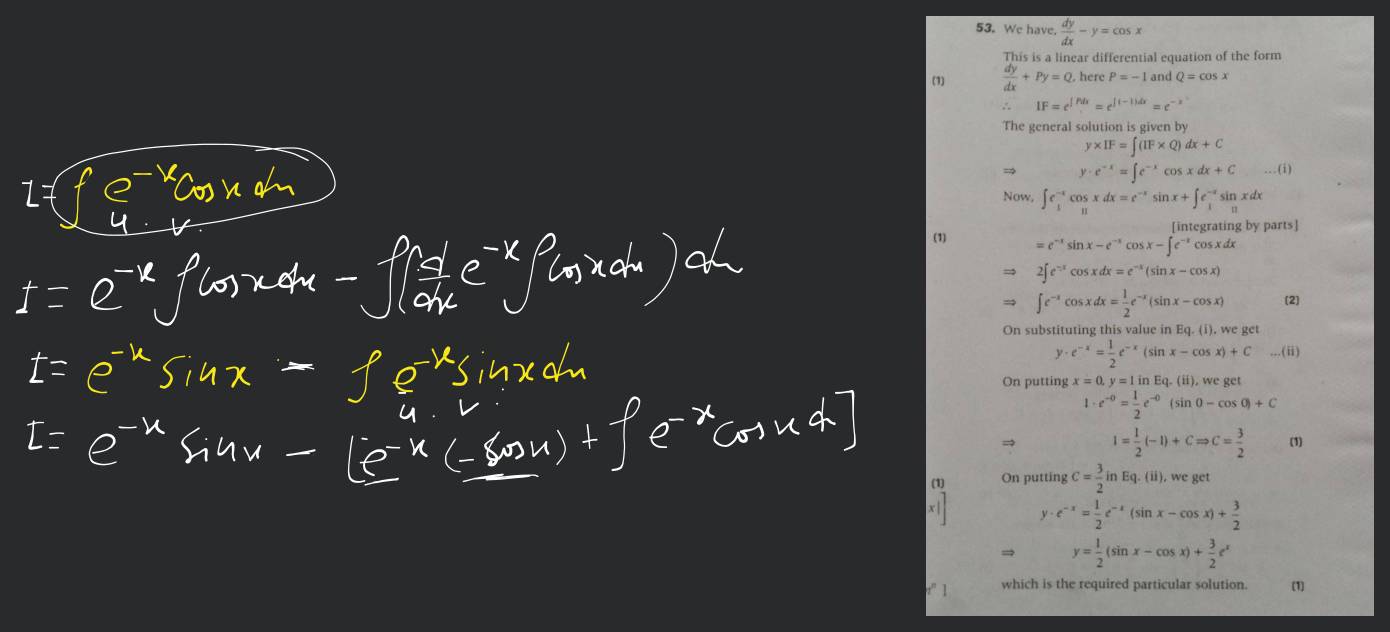 I = ∫ e^-x cos x dx
u . v.
I = e^-x ∫ cos x dx - ∫( d/dx e^-x ∫ cos x dx ) dx
I = e^-x sin x - ∫ e^-x sin x dx
u . v.
I = e^-x sin x - [e^-x (-cos x) + ∫ e^-x cos x d]
53. We have, dy/dx - y = cos x
This is a linear differential equation of the form
(1) dy/dx + Py = Q, here P = - 1 and Q = cos x
∴ IF = e^∫ Pdx = e^∫(-1)dx = e^-x
The general solution is given by
y × IF = ∫(IF × Q) dx + C
⇒ y · e^-x = ∫e^-x cos x dx + C ...(i)
Now, ∫e^-x cos x dx = e^-x sin x + ∫e^-x sin x dx
I II I II
[integrating by parts]
(1) = e^-x sin x - e^-x cos x - ∫e^-x cos x dx
⇒ 2∫e^-x cos x dx = e^-x (sin x - cos x)
⇒ ∫e^-x cos x dx = 1/2 e^-x (sin x - cos x) (2)
On substituting this value in Eq. (i), we get
y · e^-x = 1/2 e^-x (sin x - cos x) + C ...(ii)
On putting x = 0, y = 1 in Eq. (ii), we get
1 · e^-0 = 1/2 e^-0 (sin 0 - cos 0) + C
⇒ 1 = 1/2 (-1) + C ⇒ C = 3/2 (1)
(1) On putting C = 3/2 in Eq. (ii), we get
x|] y · e^-x = 1/2 e^-x (sin x - cos x) + 3/2
⇒ y = 1/2 (sin x - cos x) + 3/2 e^x
which is the required particular solution. (1)